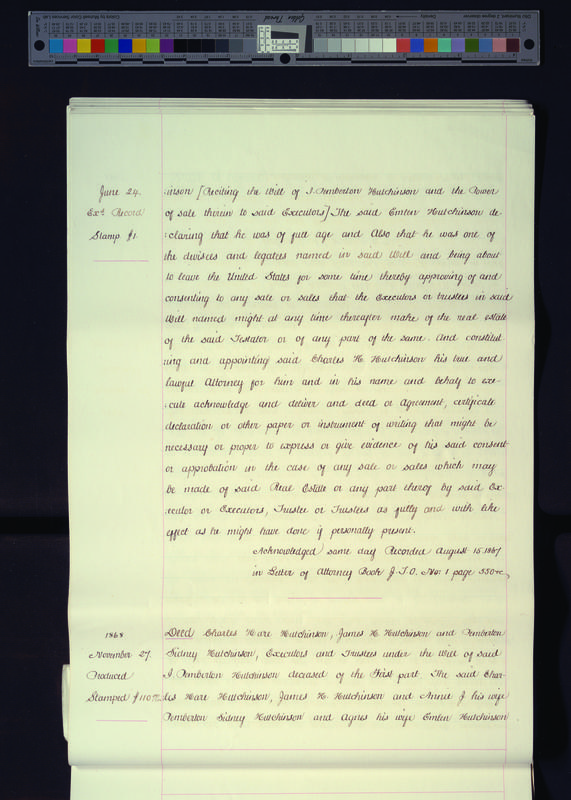 June 24.
Exd. Record
Stamp $1.
:inson [Reciting the Will of I. Pemberton Hutchinson and the Power
of sale therein to said Executors] The said Emlen Hutchinson de
:claring that he was of full age and Also that he was one of
the devisees and legatees named in said Will and being about
to leave the United States for some time thereby approving of and
consenting to any sale or sales that the Executors or trustees in said
Will named might at any time thereafter make of the real estate
of the said Testator or of any part of the same. And constitut
:ing and appointing said Charles H. Hutchinson his true and
lawful Attorney for him and in his name and behalf to exe-
:cute acknowledge and deliver and deed or Agreement, certificate
declaration or other paper or instrument of writing that might be
necessary or proper to express or give evidence of his said consent
or approbation in the case of any sale or sales which may
be made of said Real Estate or any part thereof by said Ex
:ecutor or Executors, Trustee or Trustees as fully and with like
effect as he might have done if personally present.
Acknowledged same day Recorded August 15 1867
in Letter of Attorney Book J.T.O. No: 1 page 550 &c,
1868
November 27.
Produced
Stamped $110
Deed Charles Hare Hutchinson, James H. Hutchinson and Pemberton
Sidney Hutchinson, Executors and Trustees under the Will of said
I. Pemberton Hutchinson deceased of the First part. The said Char-
les Hare Hutchinson, James H. Hutchinson and Annie J his wife
Pemberton Sidney Hutchinson and Agnes his wife Emlen Hutchinson